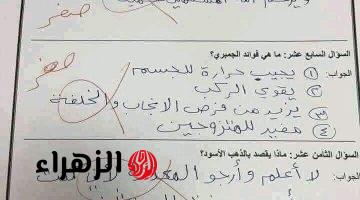 صفر
السؤال السابع عشر: ما هي فوائد الجمبري؟
الجواب: ① يجيب حرارة للجسم
② يقوي الركب
③ يزيد من فرص الانجاب والخلفة
④ مفيد للمتزوجين
صفر
السؤال الثامن عشر: ماذا يقصد بالذهب الأسود؟
الجواب: لا أعلم وأرجو
الزهراء